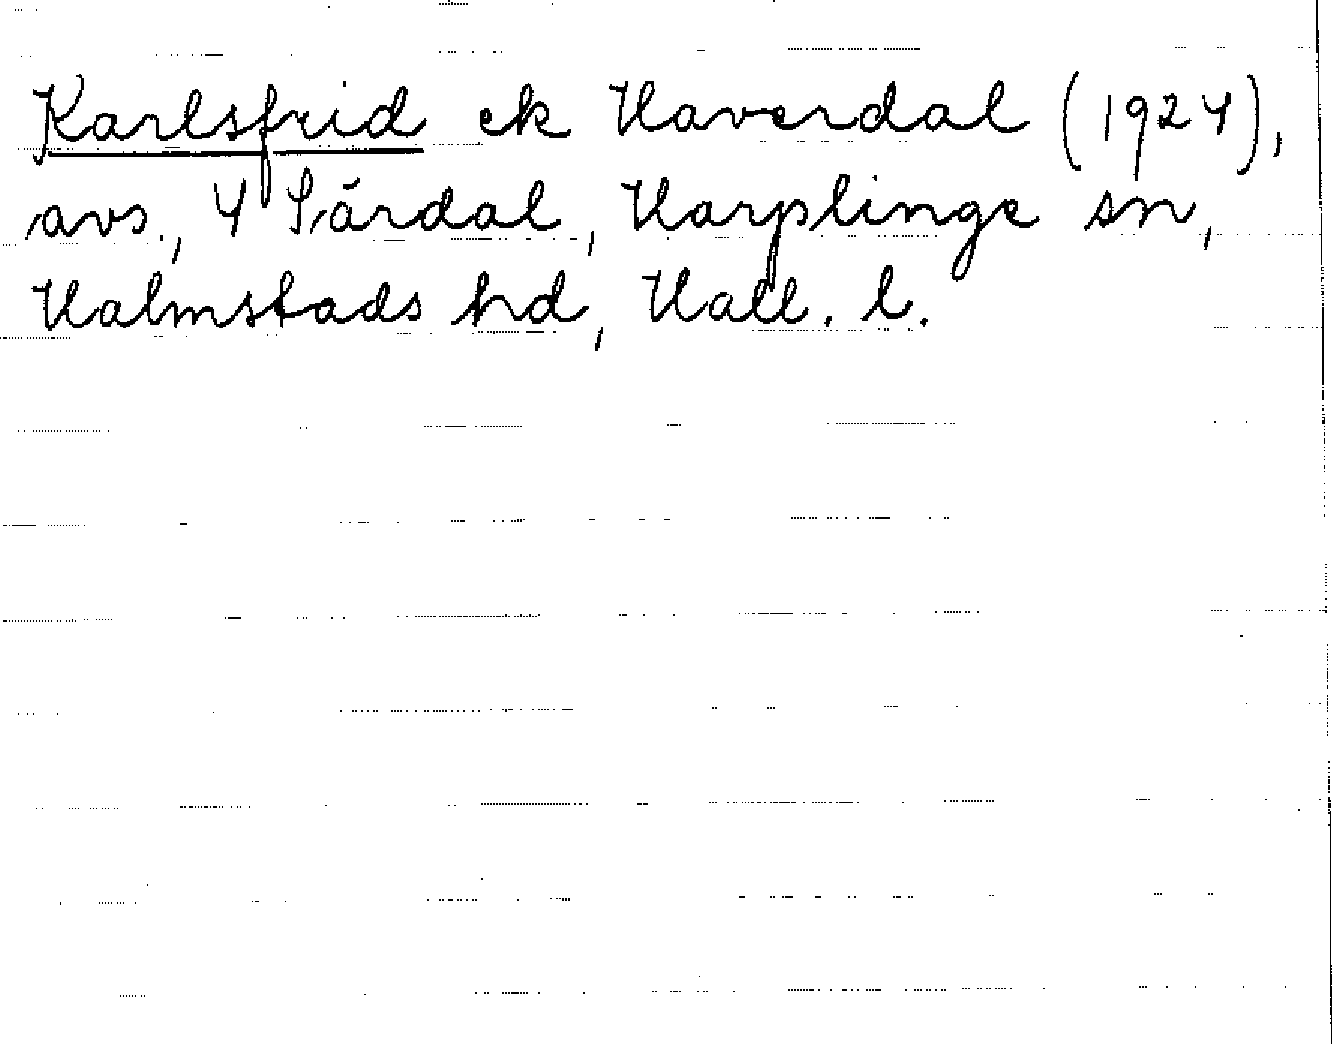 Karlsfrid ek Haverdal (1924),
avs., 4 Särdal, Harplinge sn,
Halmstads hd, Hall. l.